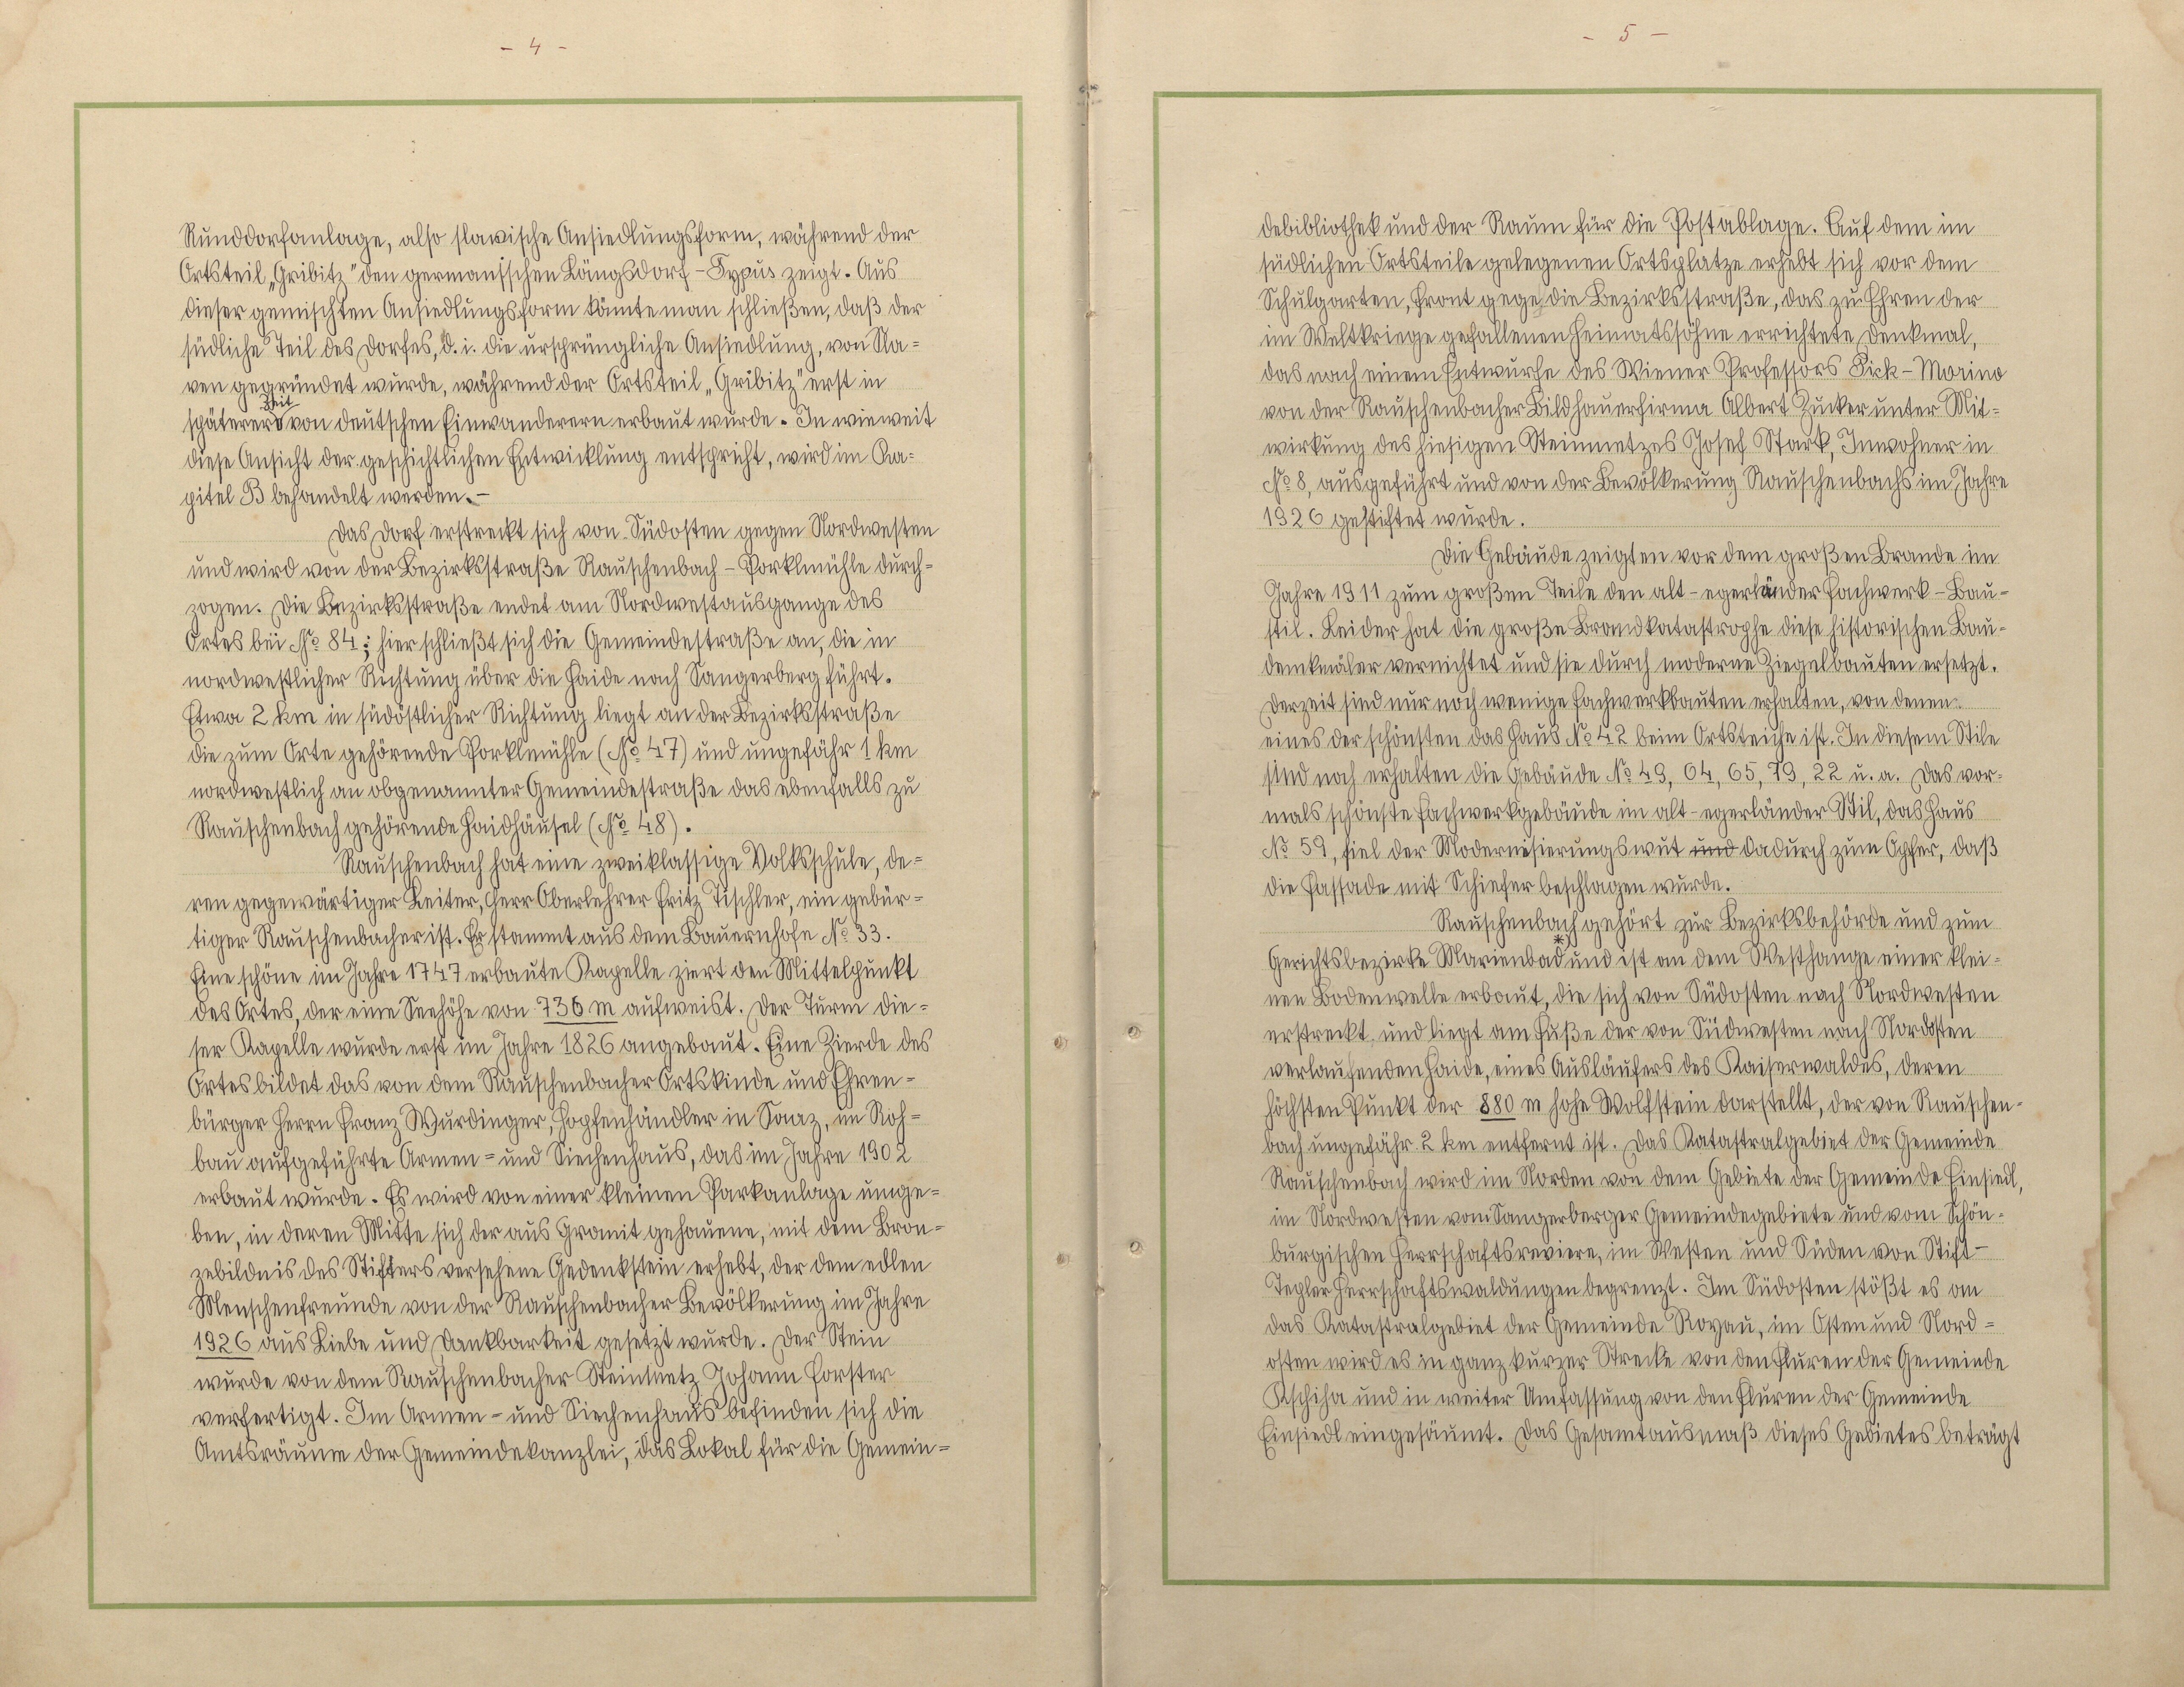 - 4 -
Runddorfanlage, also slawische Ansiedlungsform, während der
Ortsteil „Gribitz" den germanischen Längsdorf-Typus zeigt. Aus
dieser gemischten Ansiedlungsform könnte man schließen, daß der
südliche Teil des Dorfes, d. i. die ursprüngliche Ansiedlung, von Sla=
ven gegründet wurde, während der Ortsteil „Gribitz" erst in
späterer Zeit von deutschen Einwanderern erbaut wurde. In wie weit
diese Ansicht der geschichtlichen Entwicklung entspricht, wird im Ka=
pitel B behandelt werden.-
Das Dorf erstreckt sich von Südosten gegen Nordwesten
und wird von der Bezirksstraße Rauschenbach - Porklmühle durch=
zogen. Die Bezirksstraße endet am Nordwestausgange des
Ortes bei No 84; hier schließt sich die Gemeindestraße an, die in
nordwestlicher Richtung über die Haide nach Sangerberg führt.
Etwa 2 km in südöstlicher Richtung liegt an der Bezirksstraße
die zum Orte gehörende Porklmühle (No 47) und ungefähr 1 km
nordwestlich an obgenannter Gemeindestraße das ebenfalls zu
Rauschenbach gehörende Haidhäusel (No 48).
Rauschenbach hat eine zweiklassige Volksschule, de=
ren gegenwärtiger Leiter, Herr Oberlehrer Fritz Tischler, ein gebür=
tiger Rauschenbacher ist. Er stammt aus dem Bauernhofe No 33.
Eine schöne im Jahre 1747 erbaute Kapelle ziert den Mittelpunkt
des Ortes, der eine Seehöhe von 736 m aufweist. Der Turm die=
ser Kapelle wurde erst im Jahre 1826 angebaut. Eine Zierde des
Ortes bildet das von dem Rauschenbacher Ortskinde und Ehren=
bürger Herrn Franz Wurdinger, Hopfenhändler in Saaz, im Roh=
bau aufgeführte Armen= und Siechenhaus, das im Jahre 1902
erbaut wurde. Es wird von einer kleinen Parkanlage umge=
ben, in deren Mitte sich der aus Granit gehauene, mit dem Bron=
zebildnis des Stifters versehene Gedenkstein erhebt, der dem edlen
Menschenfreunde von der Rauschenbacher Bevölkerung im Jahre
1926 aus Liebe und Dankbarkeit gesetzt wurde. Der Stein
wurde von dem Rauschenbacher Steinmetz Johann Forster
verfertigt. Im Armen= und Siechenhaus befinden sich die
Amtsräume der Gemeindekanzlei, das Lokal für die Gemein=
- 5 -
debibliothek und der Raum für die Postablage. Auf dem im
südlichen Ortsteile gelegenen Ortsplatze erhebt sich vor dem
Schulgarten, Front gege die Bezirksstraße, das zu Ehren der
im Weltkriege gefallenen Heimatsöhne errichtete Denkmal,
das nach einem Entwurfe des Wiener Professors Pick-Morino
von der Rauschenbacher Bildhauerfirma Albert Zucker unter Mit=
wirkung des hiesigen Steinmetzes Josef Stark, Inwohner in
No 8, ausgeführt und von der Bevölkerung Rauschenbachs im Jahre
1926 gestiftet wurde.
Die Gebäude zeigten vor dem großen Brande im
Jahre 1911 zum großen Teile den alt-egerländer Fachwerk-Bau=
stil. Leider hat die große Brandkatastrophe diese historischen Bau=
denkmäler vernichtet und sie durch moderne Ziegelbauten ersetzt.
Derzeit sind nur noch wenige Fachwerkbauten erhalten, von denen
eines der schönsten das Haus No 42 beim Ortsteiche ist. In diesem Stile
sind noch erhalten die Gebäude No 49, 64, 65, 79, 22 u. a. Das vor=
mals schönste Fachwerkgebäude im alt-egerländer Stil, das Haus
No 59, fiel der Modernisierungswut und dadurch zum Opfer, daß
die Fassade mit Schiefer beschlagen wurde.
Rauschenbach gehört zur Bezirksbehörde und zum
Gerichtsbezirke Marienbad*) und ist an dem Westhange einer klei=
nen Bodenwelle erbaut, die sich von Südosten nach Nordwesten
erstreckt, und liegt am Fuße der von Südwesten nach Nordosten
verlaufenden Haide, eines Ausläufers des Kaiserwaldes, deren
höchsten Punkt der 880 m hohe Wolfstein darstellt, der von Rauschen=
bach ungefähr 2 km entfernt ist. Das Katastralgebiet der Gemeinde
Rauschenbach wird im Norden von dem Gebiete der Gemeinde Einsiedl,
im Nordwesten vom Sangerberger Gemeindegebiete und vom Schön=
burgischen Herrschaftsreviere, im Westen und Süden von Stift-
Tepler Herrschaftswaldungen begrenzt. Im Südosten stößt es an
das Katastralgebiet der Gemeinde Royau, im Osten und Nord=
osten wird es in ganz kurzer Strecke von den Fluren der Gemeinde
Kschiha und in weiter Umfassung von den Fluren der Gemeinde
Einsiedl eingesäumt. Das Gesamtausmaß dieses Gebietes beträgt